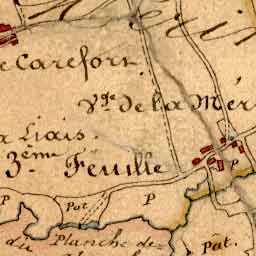 e Carefort.
Vge de la Mér
Liais.
3ème Feuille
P
P
Pat.
P
du
Planche de
Pat.